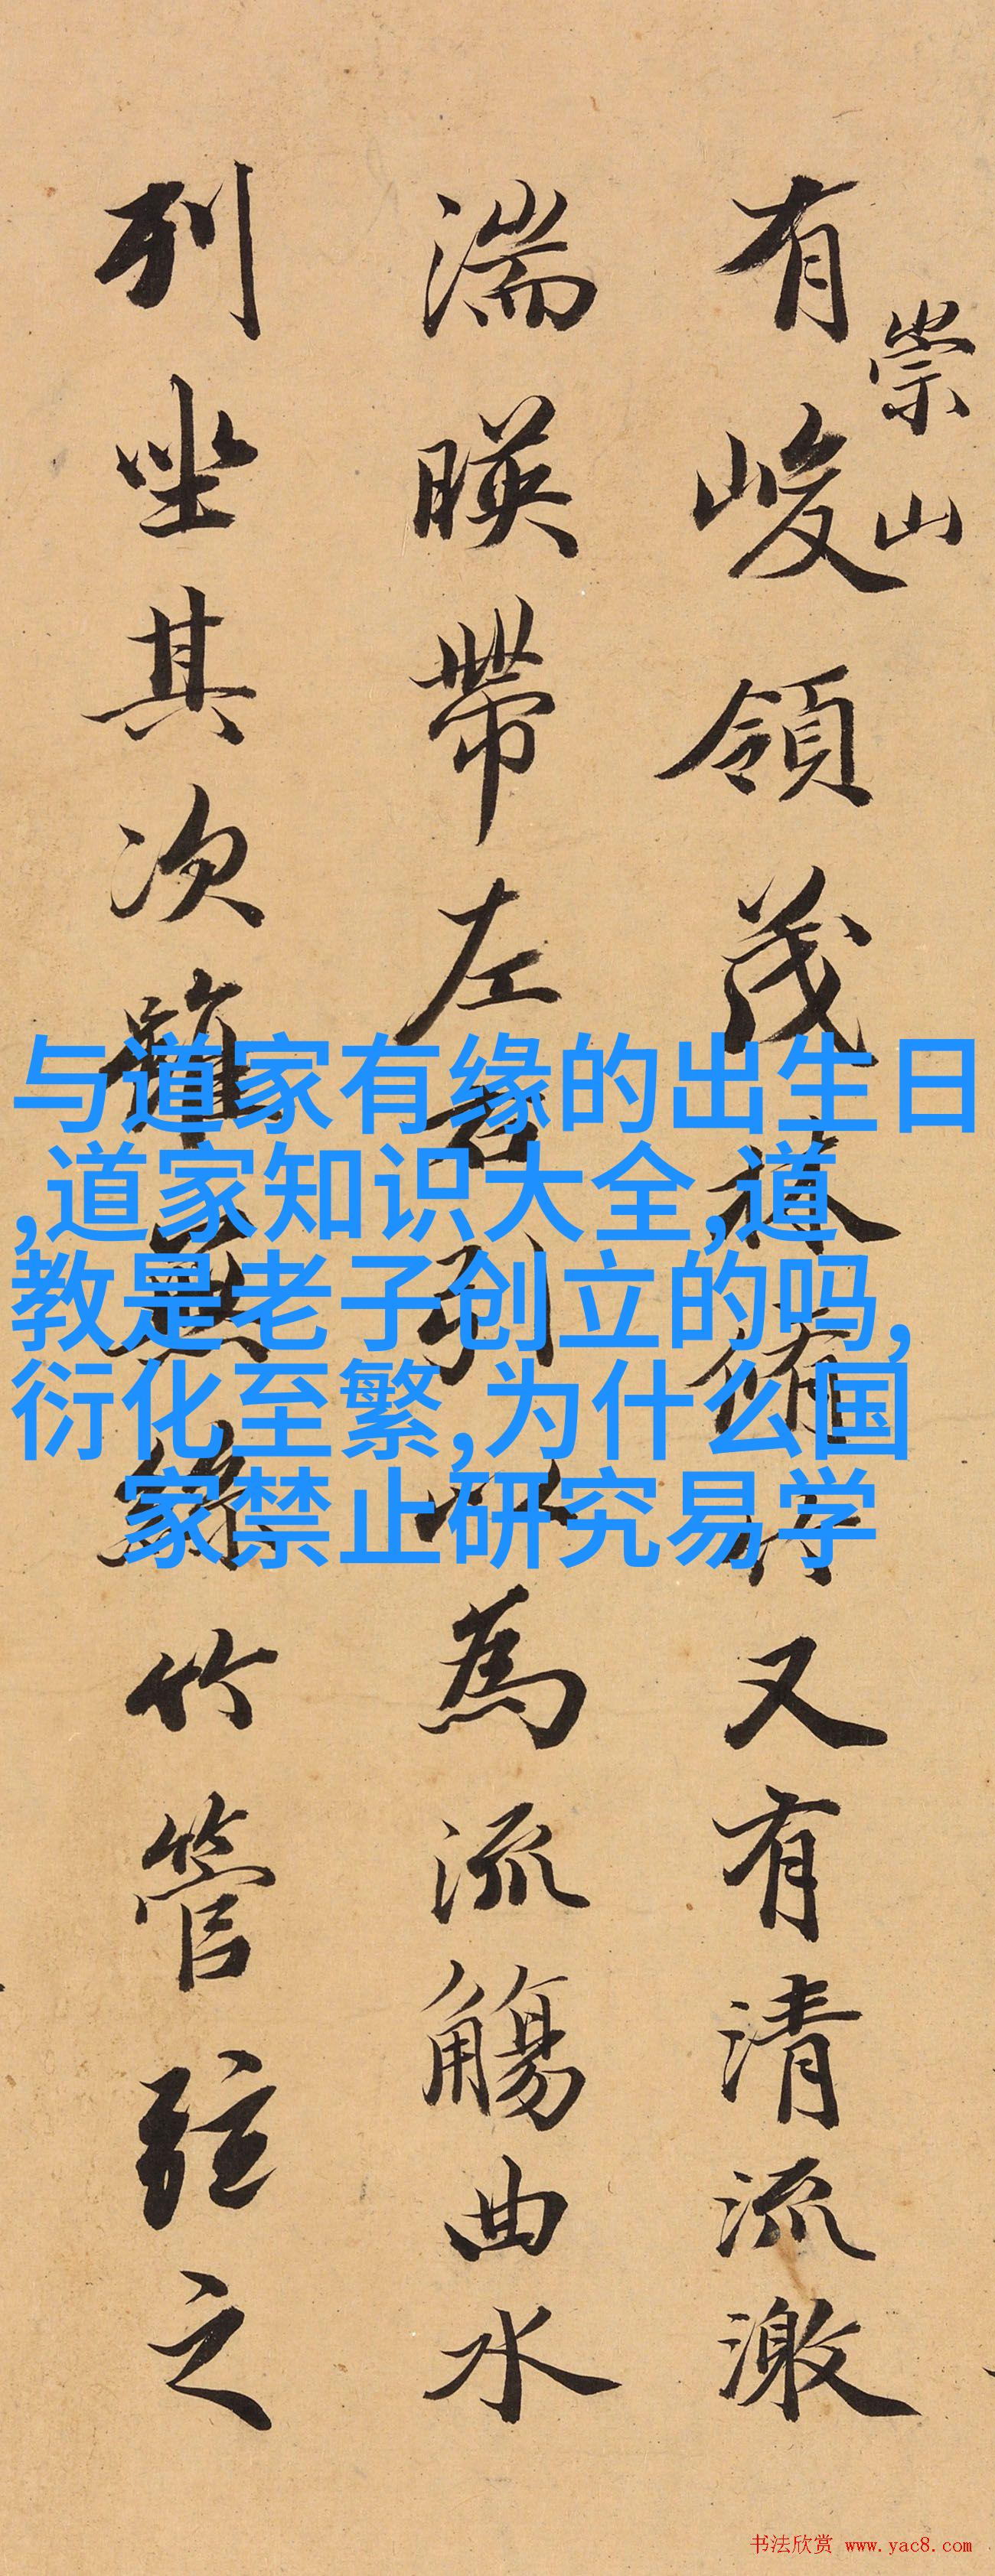 崇山
有峻領茂林脩竹又有清流激
湍暎帶左右引以為流觴曲水
列坐其次雖無絲竹管弦之
与道家有缘的出生日
,道家知识大全,道
教是老子创立的吗,
衍化至繁,为什么国
家禁止研究易学
书法欣赏 www.yac8.com